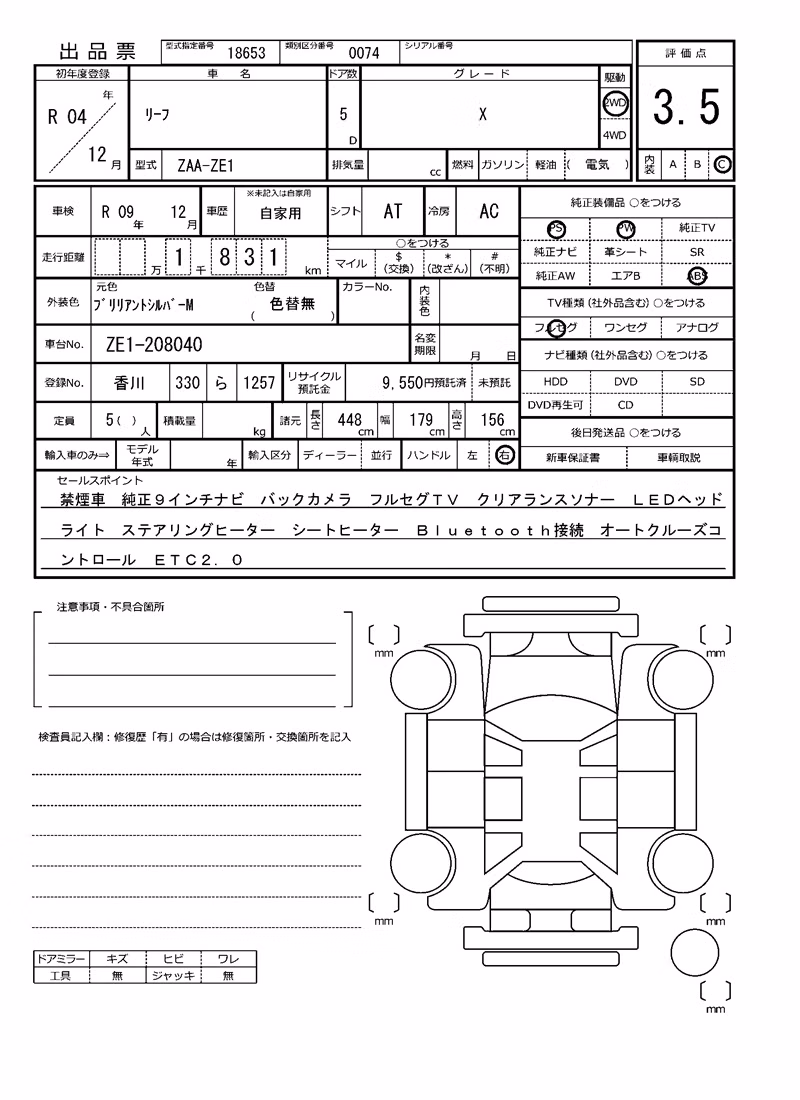 出品票 型式指定番号 18653 類別区分番号 0074 シリアル番号
評価点
3.5
内装 A B C
初年度登録 車名 ドア数 グレード 駆動
R 04 年 12 月 リーフ 5 D X 2WD 4WD
型式 ZAA-ZE1 排気量 cc 燃料 ガソリン 軽油 ( 電気 )
車検 R 09 年 12 月 車歴 ※未記入は自家用 自家用 シフト AT 冷房 AC
走行距離 万 1 千 8 3 1 km ○をつける マイル $ (交換) * (改ざん) # (不明)
外装色 元色 ブリリアントシルバーM 色替 ( 色替無 ) カラーNo. 内装色
車台No. ZE1-208040 名変期限 月 日
登録No. 香川 330 ら 1257 リサイクル預託金 9,550円預託済 未預託
定員 5 ( ) 人 積載量 kg 諸元 長さ 448 cm 幅 179 cm 高さ 156 cm
輸入車のみ⇒ モデル年式 年 輸入区分 ディーラー 並行 ハンドル 左 右
純正装備品 ○をつける
PS PW 純正TV
純正ナビ 革シート SR
純正AW エアB ABS
TV種類 (社外品含む) ○をつける
フルセグ ワンセグ アナログ
ナビ種類 (社外品含む) ○をつける
HDD DVD SD
DVD再生可 CD
後日発送品 ○をつける
新車保証書 車輌取説
セールスポイント
禁煙車 純正9インチナビ バックカメラ フルセグTV クリアランスソナー LEDヘッド
ライト ステアリングヒーター シートヒーター Bluetooth接続 オートクルーズコ
ントロール ETC2.0
注意事項・不具合箇所
検査員記入欄：修復歴「有」の場合は修復箇所・交換箇所を記入
ドアミラー キズ ヒビ ワレ
工具 無 ジャッキ 無
mm mm
mm mm
mm